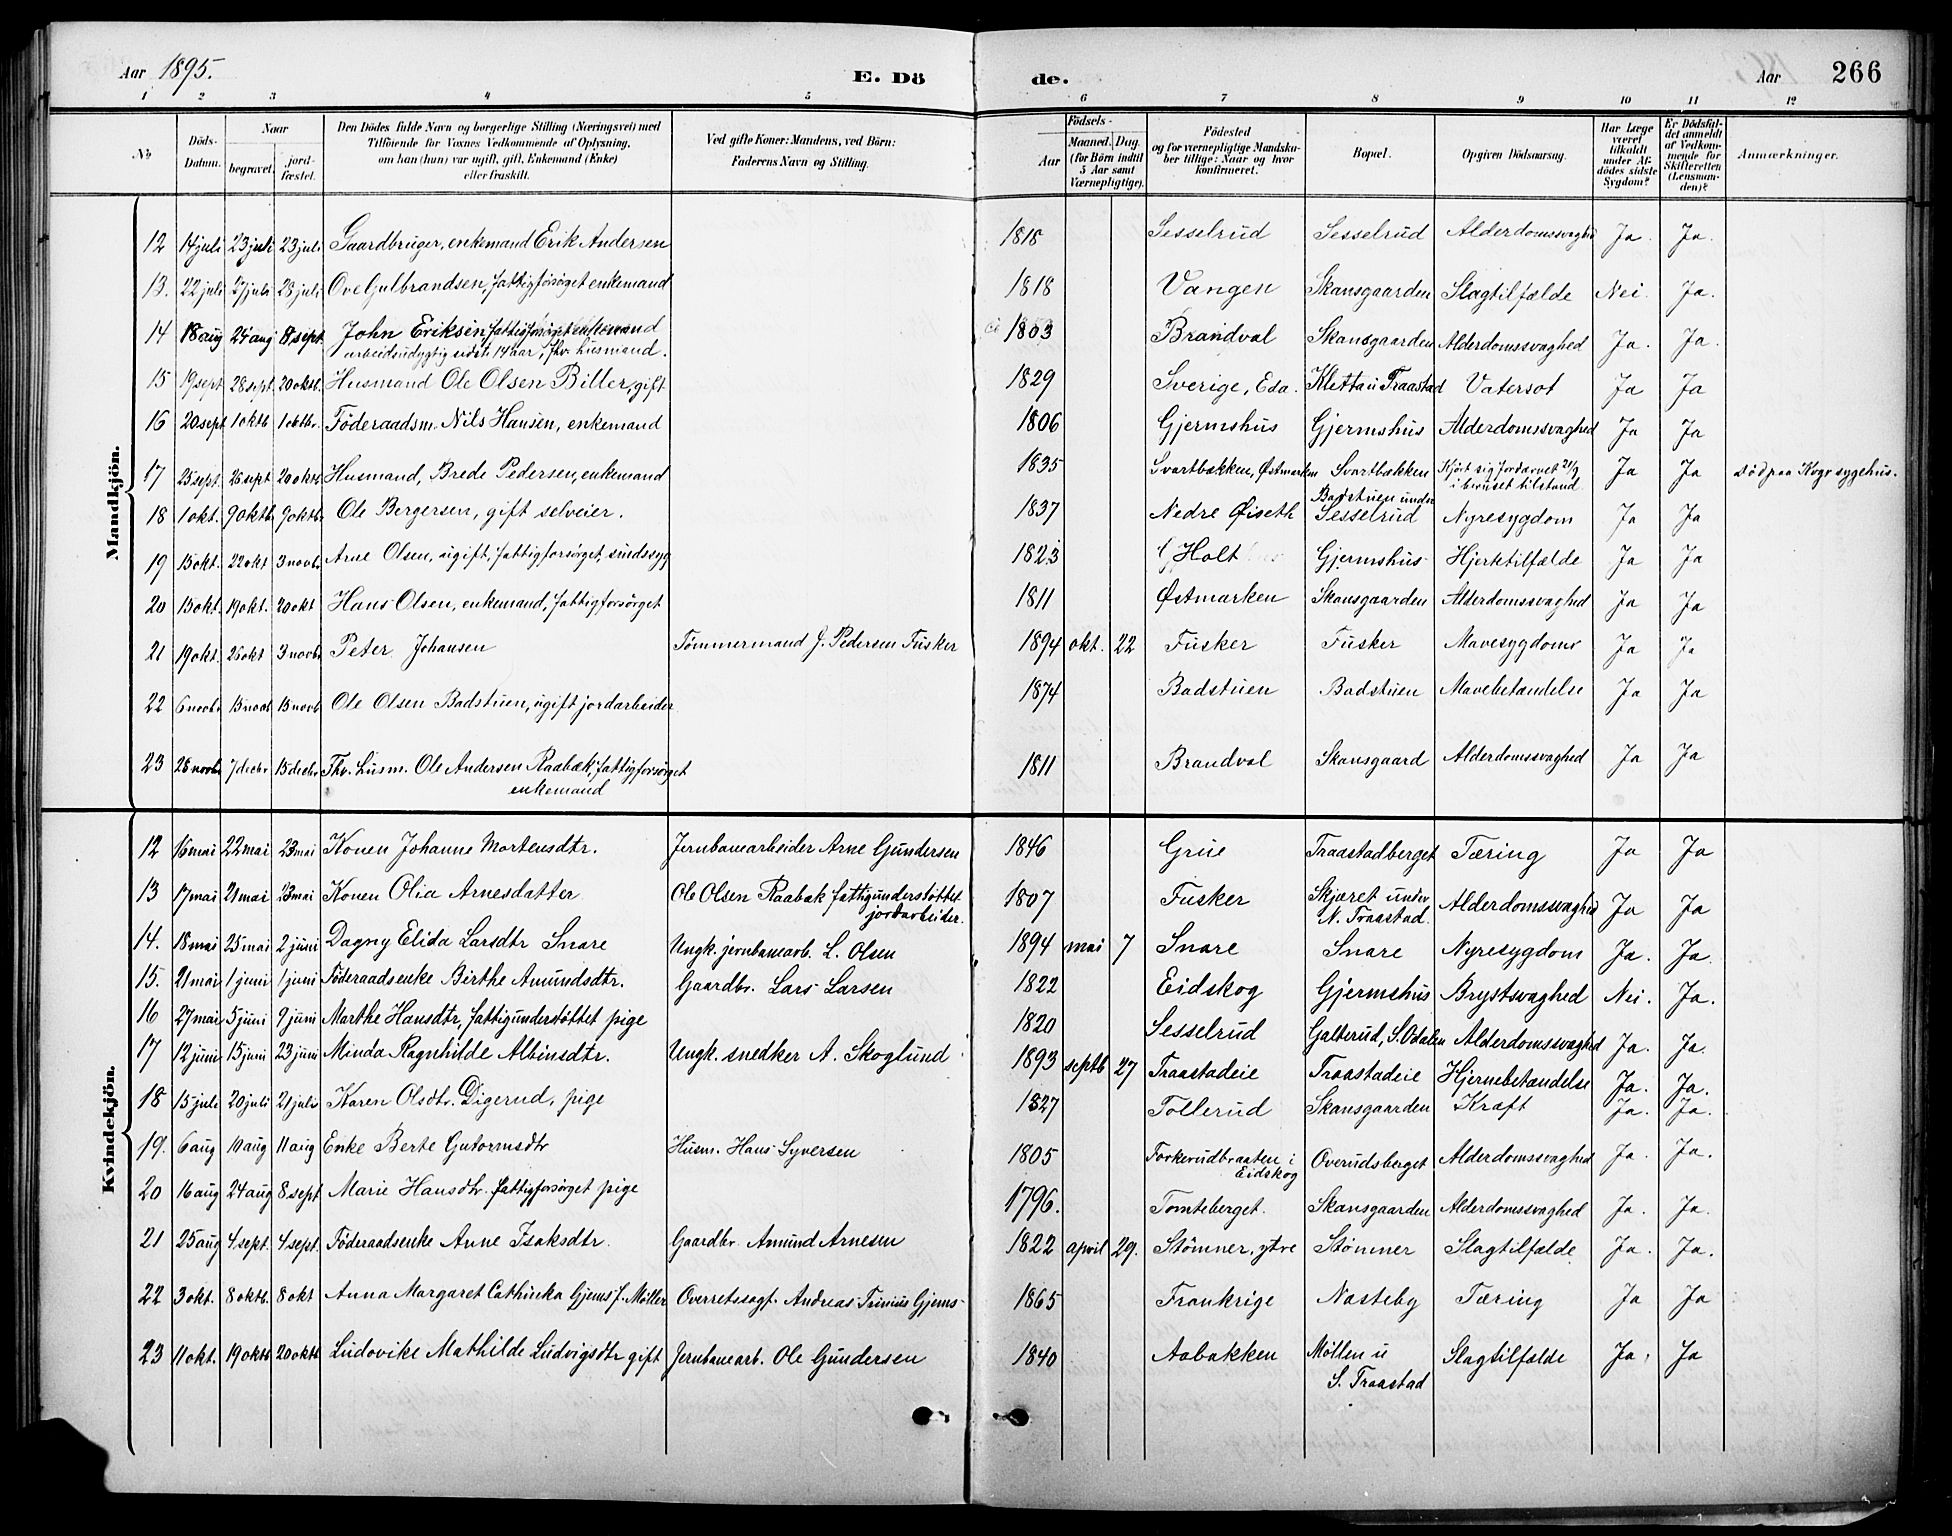 Aar 1895. E. Dö de. Aar 266
1 2 3 4 5 6 7 8 9 10 11 12
No Döds-Datum. Naar begravet. jord-fæstet. Den Dödes fulde Navn og borgerlige Stilling (Næringsvei) med Tilföiende for Voxnes Vedkommende af Oplysning, om han (hun) var ugift, gift, Enkemand (Enke) eller fraskilt. Ved gifte Koner: Mandens, ved Börn: Faderens Navn og Stilling. Födsels- Aar Maaned. Dag. (for Börn indtil 5 Aar samt Værnepligtige). Födested og for værnepligtige Mandskaber tillige: Naar og hvor konfirmeret. Bopæl. Opgiven Dödsaarsag. Har Læge været tilkaldt under Afdödes sidste Sygdom? Er Dödsfaldet anmeldt af Vedkommende for Skifteretten (Lensmanden)? Anmærkninger.
Mandkjön.
12 14 juli 23 juli 23 juli Gaardbruger, enkemand Erik Andersen 1818 Sesselrud Sesselrud Alderdomssvaghed Ja. Ja.
13. 22 juli 27 juli 28 juli Ove Gulbrandsen, fattigforsørget enkemand 1818 Vangen Skansgaarden Slagtilfælde Nei. Ja.
14 18 aug 24 aug 8 sept John Eriksen fattigforsørget enkemand 1803 Brandval Skansgaarden Alderdomssvaghed Ja. Ja.
arbeidsudygtig sidste 14 aar, fhv. husmand.
15 19 sept 28 sept. 20 oktb. Husmand Ole Olsen Biller, gift 1829 Sverige, Eda. Kletta u Traastad Vatersot Ja Ja
16 20 sept 1 oktb 1 oktbr. Føderaadsm. Nils Hansen, enkemand 1806 Gjermshus Gjermshus Alderdomssvaghed Ja Ja
17 25 sept. 26 sept 20 oktb Husmand, Brede Pedersen, enkemand 1835 Svartbækken, Østmarken Svartbækken Kjørt sig fordærvet 21/9 i beruset tilstand. Ja Ja död paa Kogr sygehus.
18 1 okt. 9 oktb. 9 oktb. Ole Bergersen, gift selveier. 1837 Nedre Øiseth Badstuen under Sesselrud Nyresygdom Ja Ja
19 15 okt. 22 okt 3 novb. Arne Olsen, ugift, fattigforsørget, sindssyg 1823 Holt Gjermshus Hjertetilfælde Ja Ja
20 15 okt. 19 okt. 20 okt Hans Olsen, enkemand, fattigforsørget 1811 Østmarken Skansgaarden Alderdomssvaghed Ja Ja
21 19 okt. 26 okt 3 novb. Peter Johansen Tømmermand J. Pedersen Fusker 1894 okt. 22 Fusker Fusker Mavesygdom Ja Ja
22 6 novb. 15 novb 15 novb Ole Olsen Badstuen, ugift jordarbeider 1874 Badstuen Badstuen Mavebetændelse Ja Ja
23 28 novb. 7 decbr 15 decbr Fhv. husm. Ole Andersen Raabæk, fattigforsørget 1811 Brandval Skansgaard Alderdomssvaghed Ja Ja
enkemand
Kvindekjön.
12 16 mai 22 mai 23 mai Konen Johanne Mortensdtr. Jernbanearbeider Arne Gundersen 1846 Grue Traastadberget Tæring Ja Ja
13 17 mai 21 mai 23 mai Konen Olia Arnesdatter Ole Olsen Raabæk fattigunderstøttet jordarbeider. 1807 Fusker Skjæret under N. Traastad. Alderdomssvaghed Ja Ja
14. 18 mai 25 mai 2 juni Dagny Elida Larsdtr Snare Ungk. jernbanearb. L. Olsen 1894 mai 7 Snare Snare Nyresygdom Ja. Ja.
15. 21 mai 1 juni 1 juni Føderaadsenke Birthe Amundsdtr. Gaardbr. Lars Larsen 1822 Eidskog Gjermshus Brystsvaghed Nei. Ja.
16 27 mai 5 juni 9 juni Marthe Hansdtr, fattigunderstøttet pige 1820 Sesselrud Galterud, S. Odalen Alderdomssvaghed Ja. Ja.
17 12 juni 15 juni 23 juni Minda Ragnhilde Albinsdtr. Ungk. snedker A. Skoglund 1893 septb 27 Traastadeie Traastadeie Hjernebetændelse Ja. Ja.
18 15 juli 20 juli 21 juli Karen Olsdtr. Digerud, pige 1827 Tollerud Skansgaarden Kræft Ja. Ja.
19. 6 aug 10 aug 11 aug Enke Berte Gutormsdtr Husm. Hans Syversen 1805 Torkerudbraaten i Eidskog Overudsberget Alderdomssvaghed Ja. Ja.
20 16 aug 24 aug 8 sept Marie Hansdtr. fattigforsørget pige 1796. Tomteberget. Skansgaarden Alderdomssvaghed Ja. Ja.
21 25 aug 4 sept. 4 sept. Føderaadsenke Anne Isaksdtr. Gaardbr. Amund Arnesen 1822 april 29. Stømner, ytre Stømner Slagtilfælde Ja. Ja.
22 3 okt. 8 oktb. 8 okt Anna Margaret Cathinka Gjems f. Møller Overretssagf. Andreas Trinius Gjems 1865 Frankrige Næsteby Tæring Ja Ja
23 11 okt. 19 oktb 20 oktb Ludovike Mathilde Ludvigsdtr gift Jernbanearb. Ole Gundersen 1840 Aabakken Møllen u S. Traastad Slagtilfælde Ja. Ja